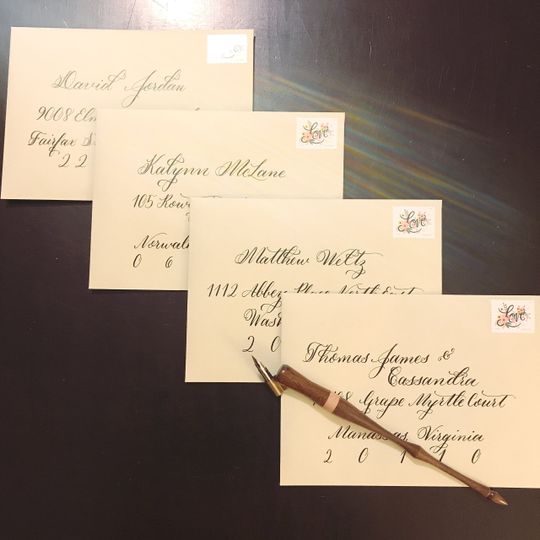 David Jordan
9008
Fairfax
22
Love
Kalynn McLane
105
Norwalk
0 6
Love
Matthew Weltz
1112 Abbey Place North East
2 0
Love
Thomas James &
Cassandra
Grape Myrtle Court
Manassas, Virginia
2 0 1 1 0